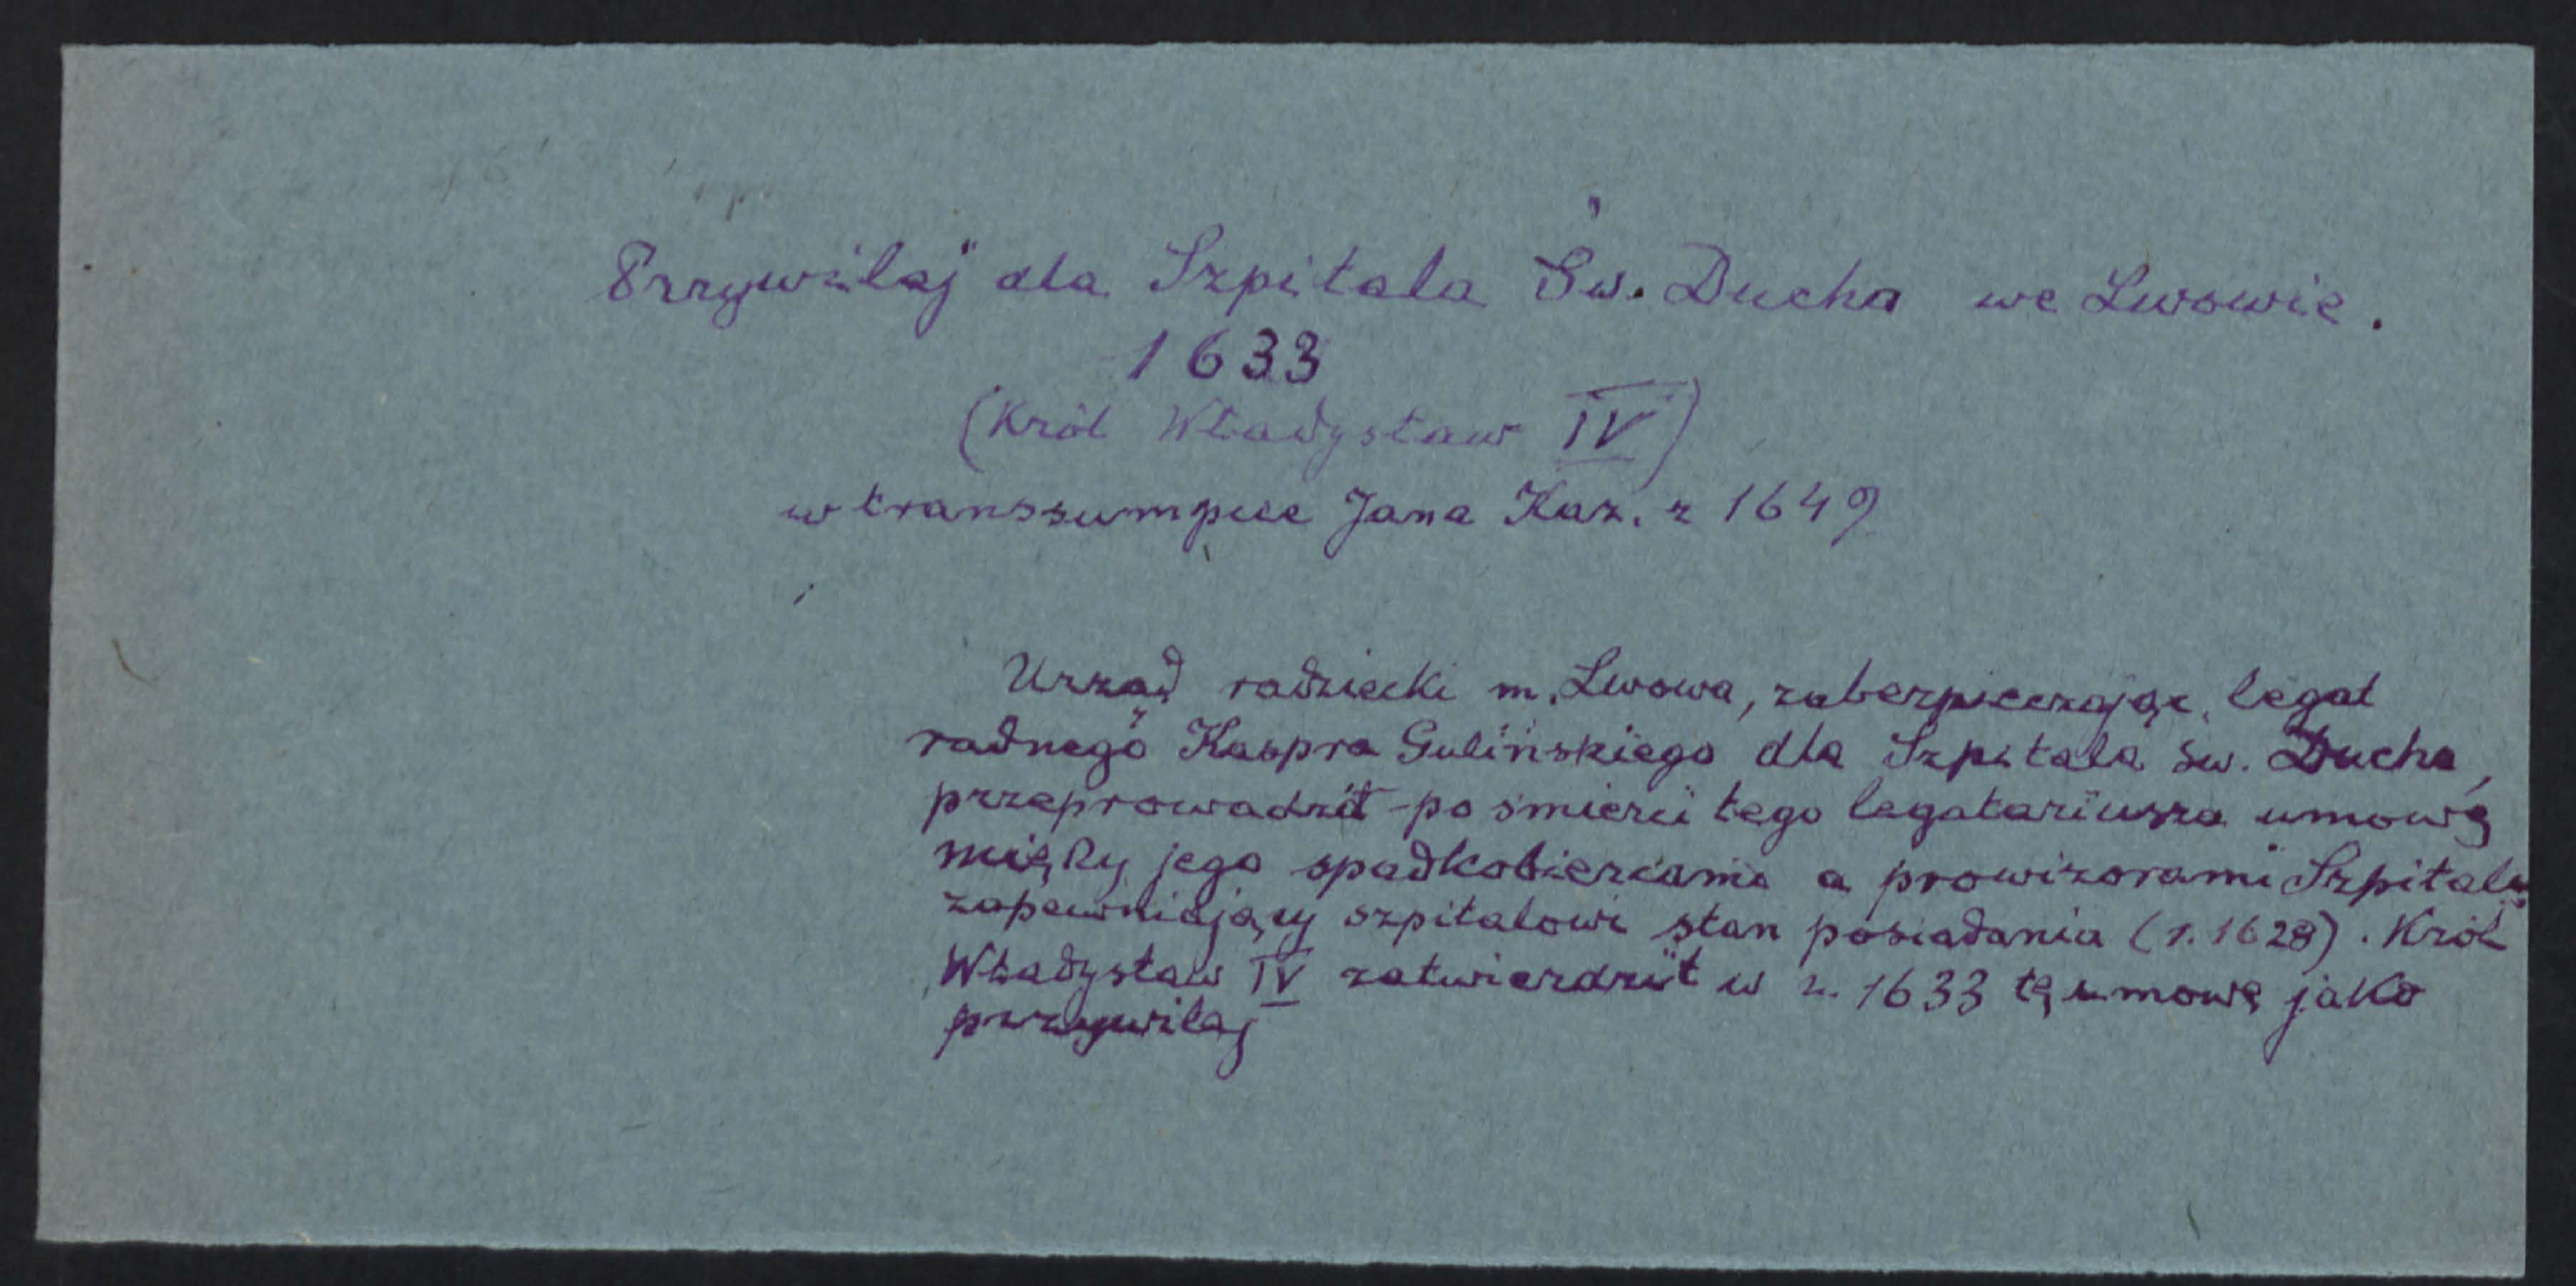 Przywilej dla Szpitala Św. Ducha we Lwowie.
1633
(Król Władysław IV)
w transsumpcie Jana Kaz. z 1649
Urząd radziecki m. Lwowa, zabezpieczając legat
radnego Kaspra Gulińskiego dla Szpitala św. Ducha,
przeprowadził po śmierci tego legatariusza umowę
między jego spadkobiercami a prowizorami Szpitala,
zapewniający szpitalowi stan posiadania (r. 1628). Król
Władysław IV zatwierdził w r. 1633 tę umowę jako
przywilej